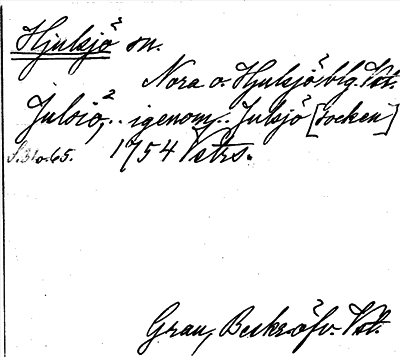 Hjulsjö sn.
Nora o. Hjulsjö blg. Vst.
Julsiö, .. igenom .. Julsjö [socken]
1754 Vstrs.
Grau, Beskr. öfv. Vst.